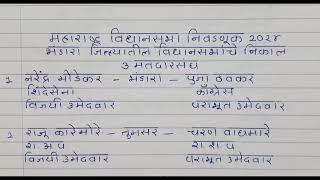 महाराष्ट्र विधानसभा निवडणूक २०२४
भंडारा जिल्ह्यातील विधानसभांचे निकाल
३ मतदारसंघ
१ नरेंद्र भोंडेकर - भंडारा - पुजा ठवकर
शिंदेसेना काँग्रेस
विजयी उमेदवार पराभूत उमेदवार
२ राजू कारेमोरे - तुमसर - चरण वाघमारे
रा अ प रा श प
विजयी उमेदवार पराभूत उमेदवार